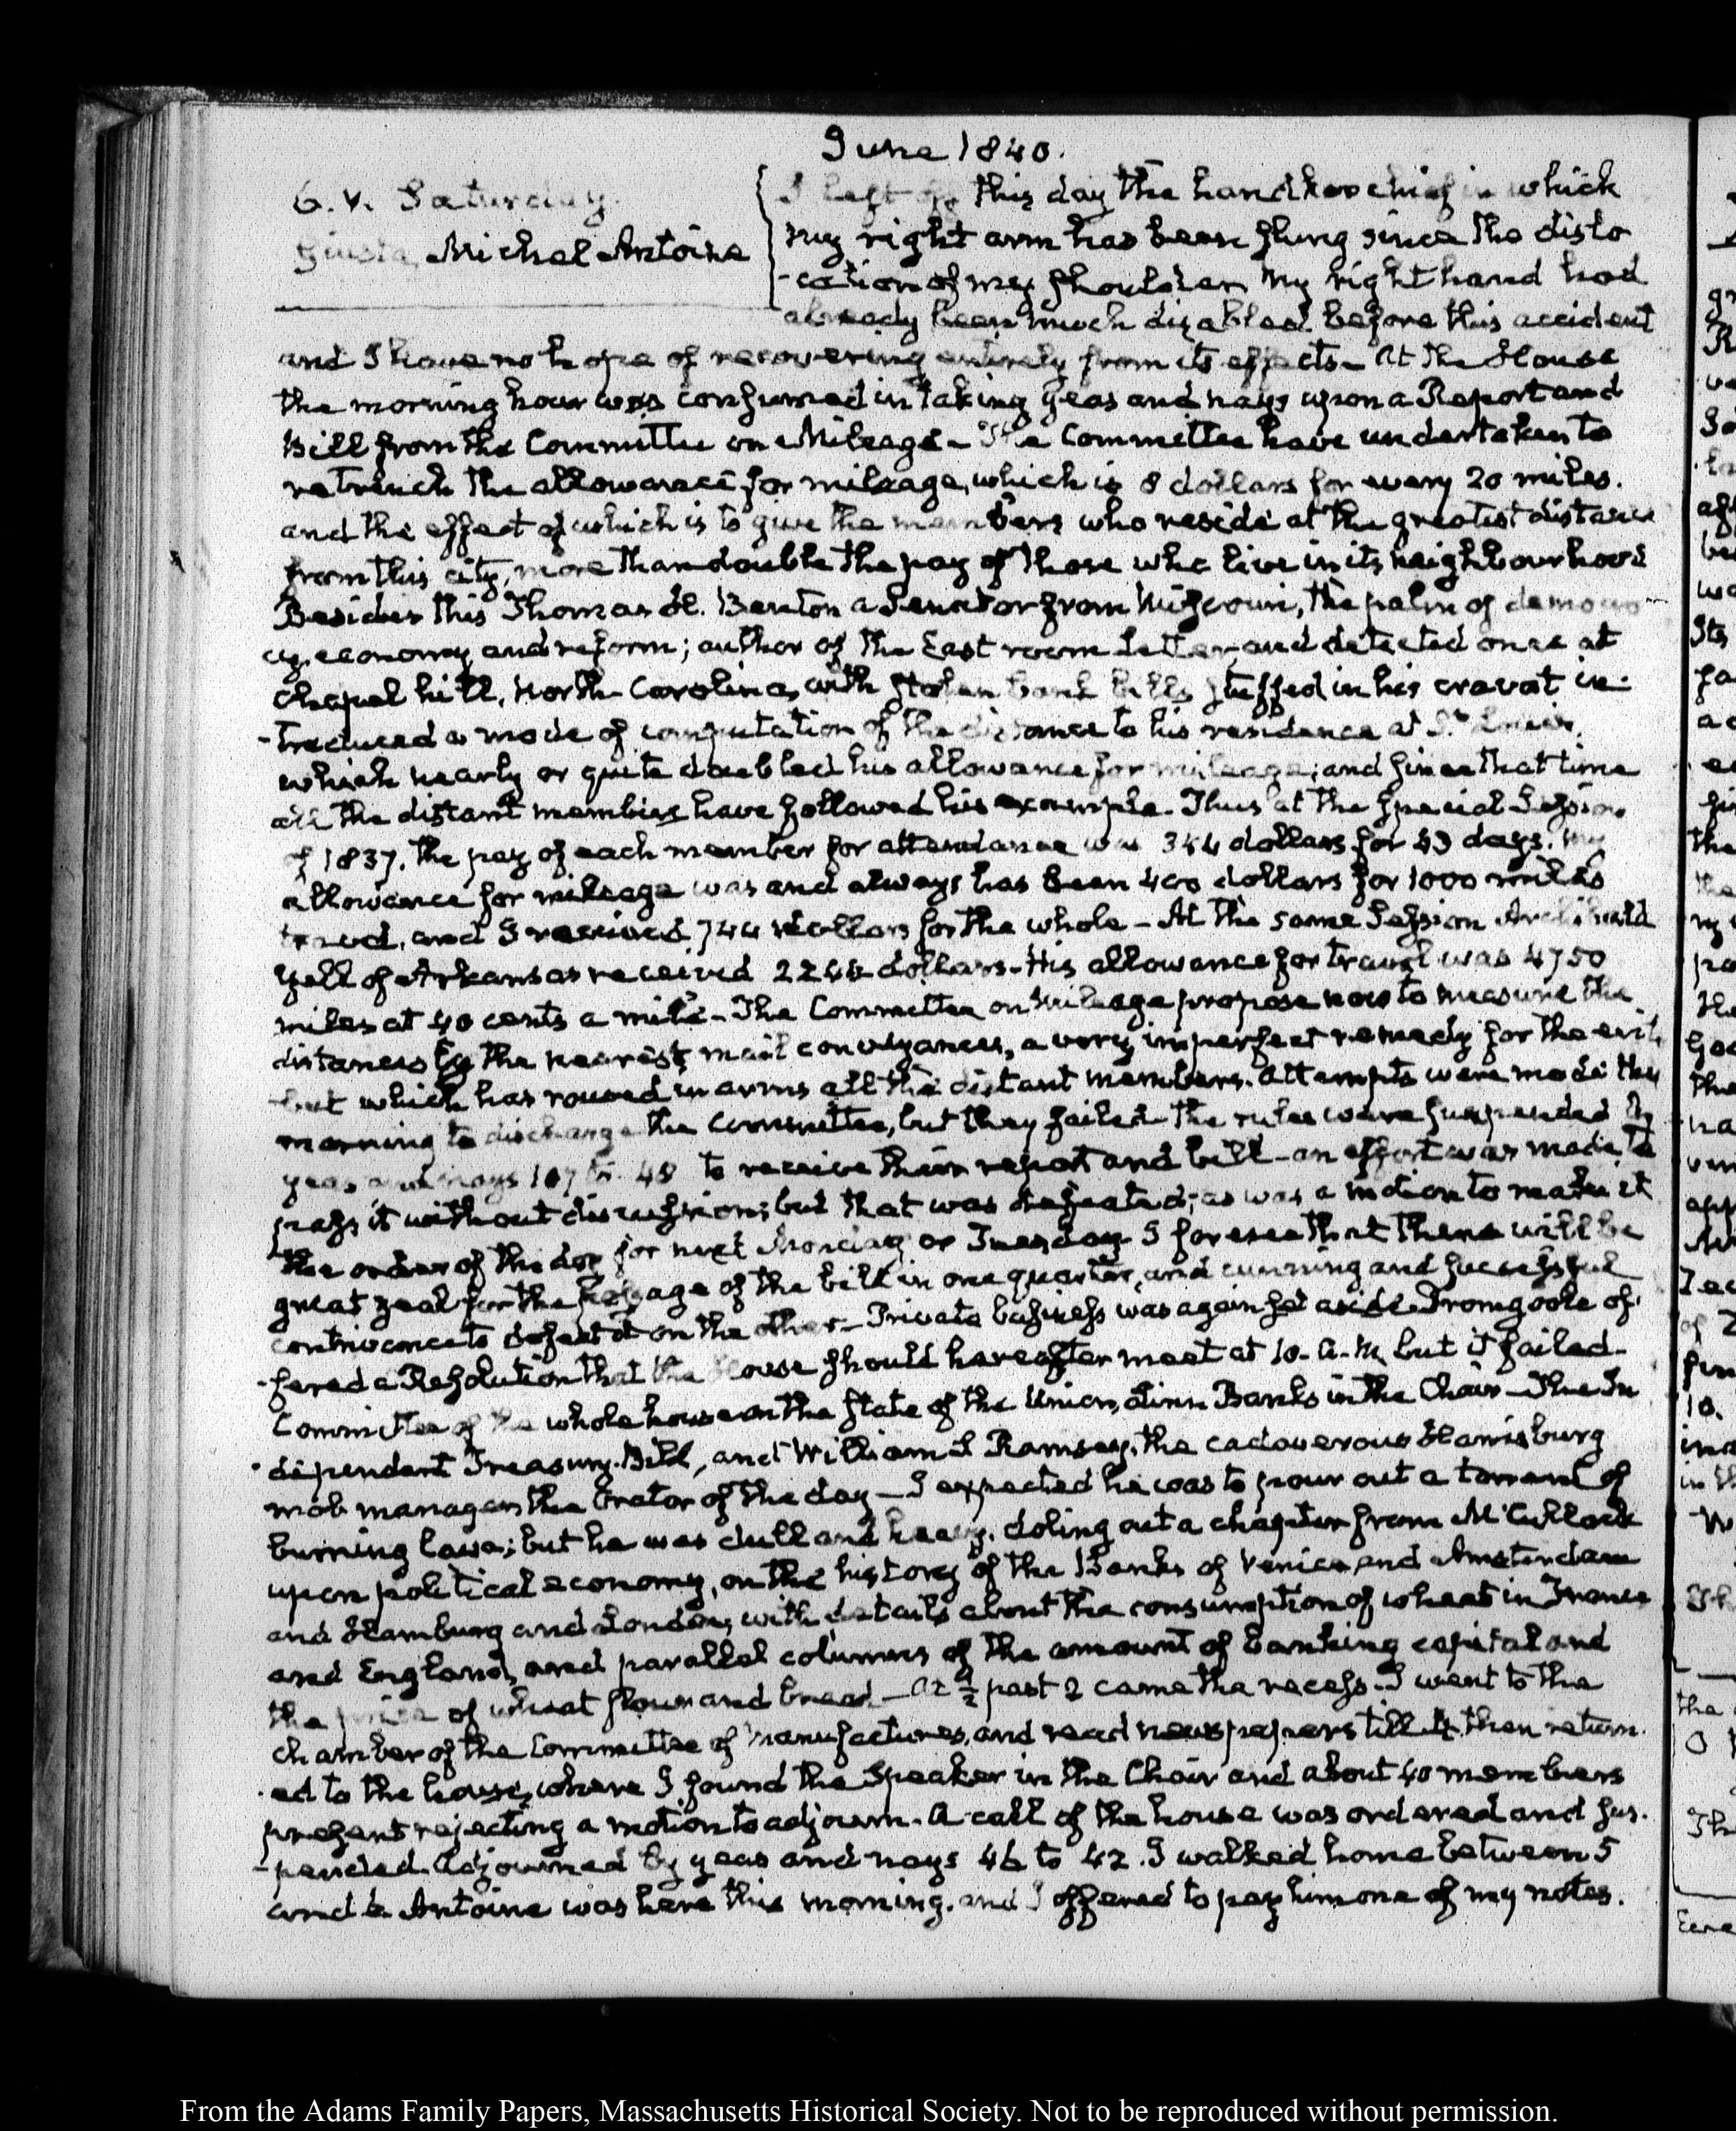 June 1840.
6. V. Saturday.
Giusta, Michel Antoine
I left off this day the handkerchief in which
my right arm has been slung since the dislo
-cation of my shoulder. My right hand had
already been much disabled before this accident
and I have no hope of recovering entirely from its effects— At the House
the morning hour was consumed in taking yeas and nays upon a Report and
Bill from the Committee on Mileage— The Committee have undertaken to
retrench the allowance for mileage, which is 8 dollars for every 20 miles.
and the effect of which is to give the members who reside at the greatest distance
from this city, more than double the pay of those who live in its neighbourhood
Besides this Thomas H. Benton a Senator from Missouri, the palm of democra
cy, economy and reform; author of the East room Letter, and detected once at
Chapel hill, North-Carolina, with stolen bank bills stuffed in his cravat in-
-troduced a mode of computation of the distance to his residence at St. Louis,
which nearly or quite doubled his allowance for mileage; and since that time
all the distant members have followed his example. Thus at the special Session
of 1837. the pay of each member for attendance was 344 dollars for 43 days. My
allowance for mileage was and always has been 400 dollars for 1000 miles
travel, and I received 744 dollars for the whole— At the same Session Archibald
Yell of Arkansas received 2244 dollars. His allowance for travel was 4750
miles at 40 cents a mile— The Committee on Mileage propose now to measure the
distances by the nearest mail conveyances, a very imperfect remedy for the evil,
but which has roused in arms all the distant members. Attempts were made this
morning to discharge the Committee, but they failed— The rules were suspended by
yeas and nays 107 to 48 to receive their report and bill— an effort was made to
pass it without discussion; but that was defeated; as was a motion to make it
the order of the day for next Monday or Tuesday— I foresee that there will be
great zeal for the passage of the bill in one quarter, and cunning and successful
contrivance to defeat it on the other— Private business was again set aside. Dromgoole of-
-fered a Resolution that the House should hereafter meet at 10. A.M. but it failed—
Committee of the whole house on the state of the Union, Linn Banks in the Chair— The In
-dependent Treasury Bill, and William S Ramsey, the cadaverous Harrisburg
mob manager the Orator of the day— I expected he was to pour out a torrent of
burning lava; but he was dull and heavy. doling out a chapter from McCulloch
upon political economy, on the history of the Banks of Venice, and Amsterdam
and Hamburg and London, with details about the consumption of wheat in France
and England, and parallel columns of the amount of banking capital and
the price of wheat flour and bread— At ½ past 2 came the recess. I went to the
chamber of the Committee of Manufactures, and read newspapers till 4, then return-
-ed to the house, where I found the Speaker in the Chair and about 40 members
present rejecting a motion to adjourn. A call of the house was ordered and sus-
-pended. Adjourned by yeas and nays 46 to 42. I walked home between 5
and 6. Antoine was here this morning, and I offered to pay him one of my notes.
From the Adams Family Papers, Massachusetts Historical Society. Not to be reproduced without permission.